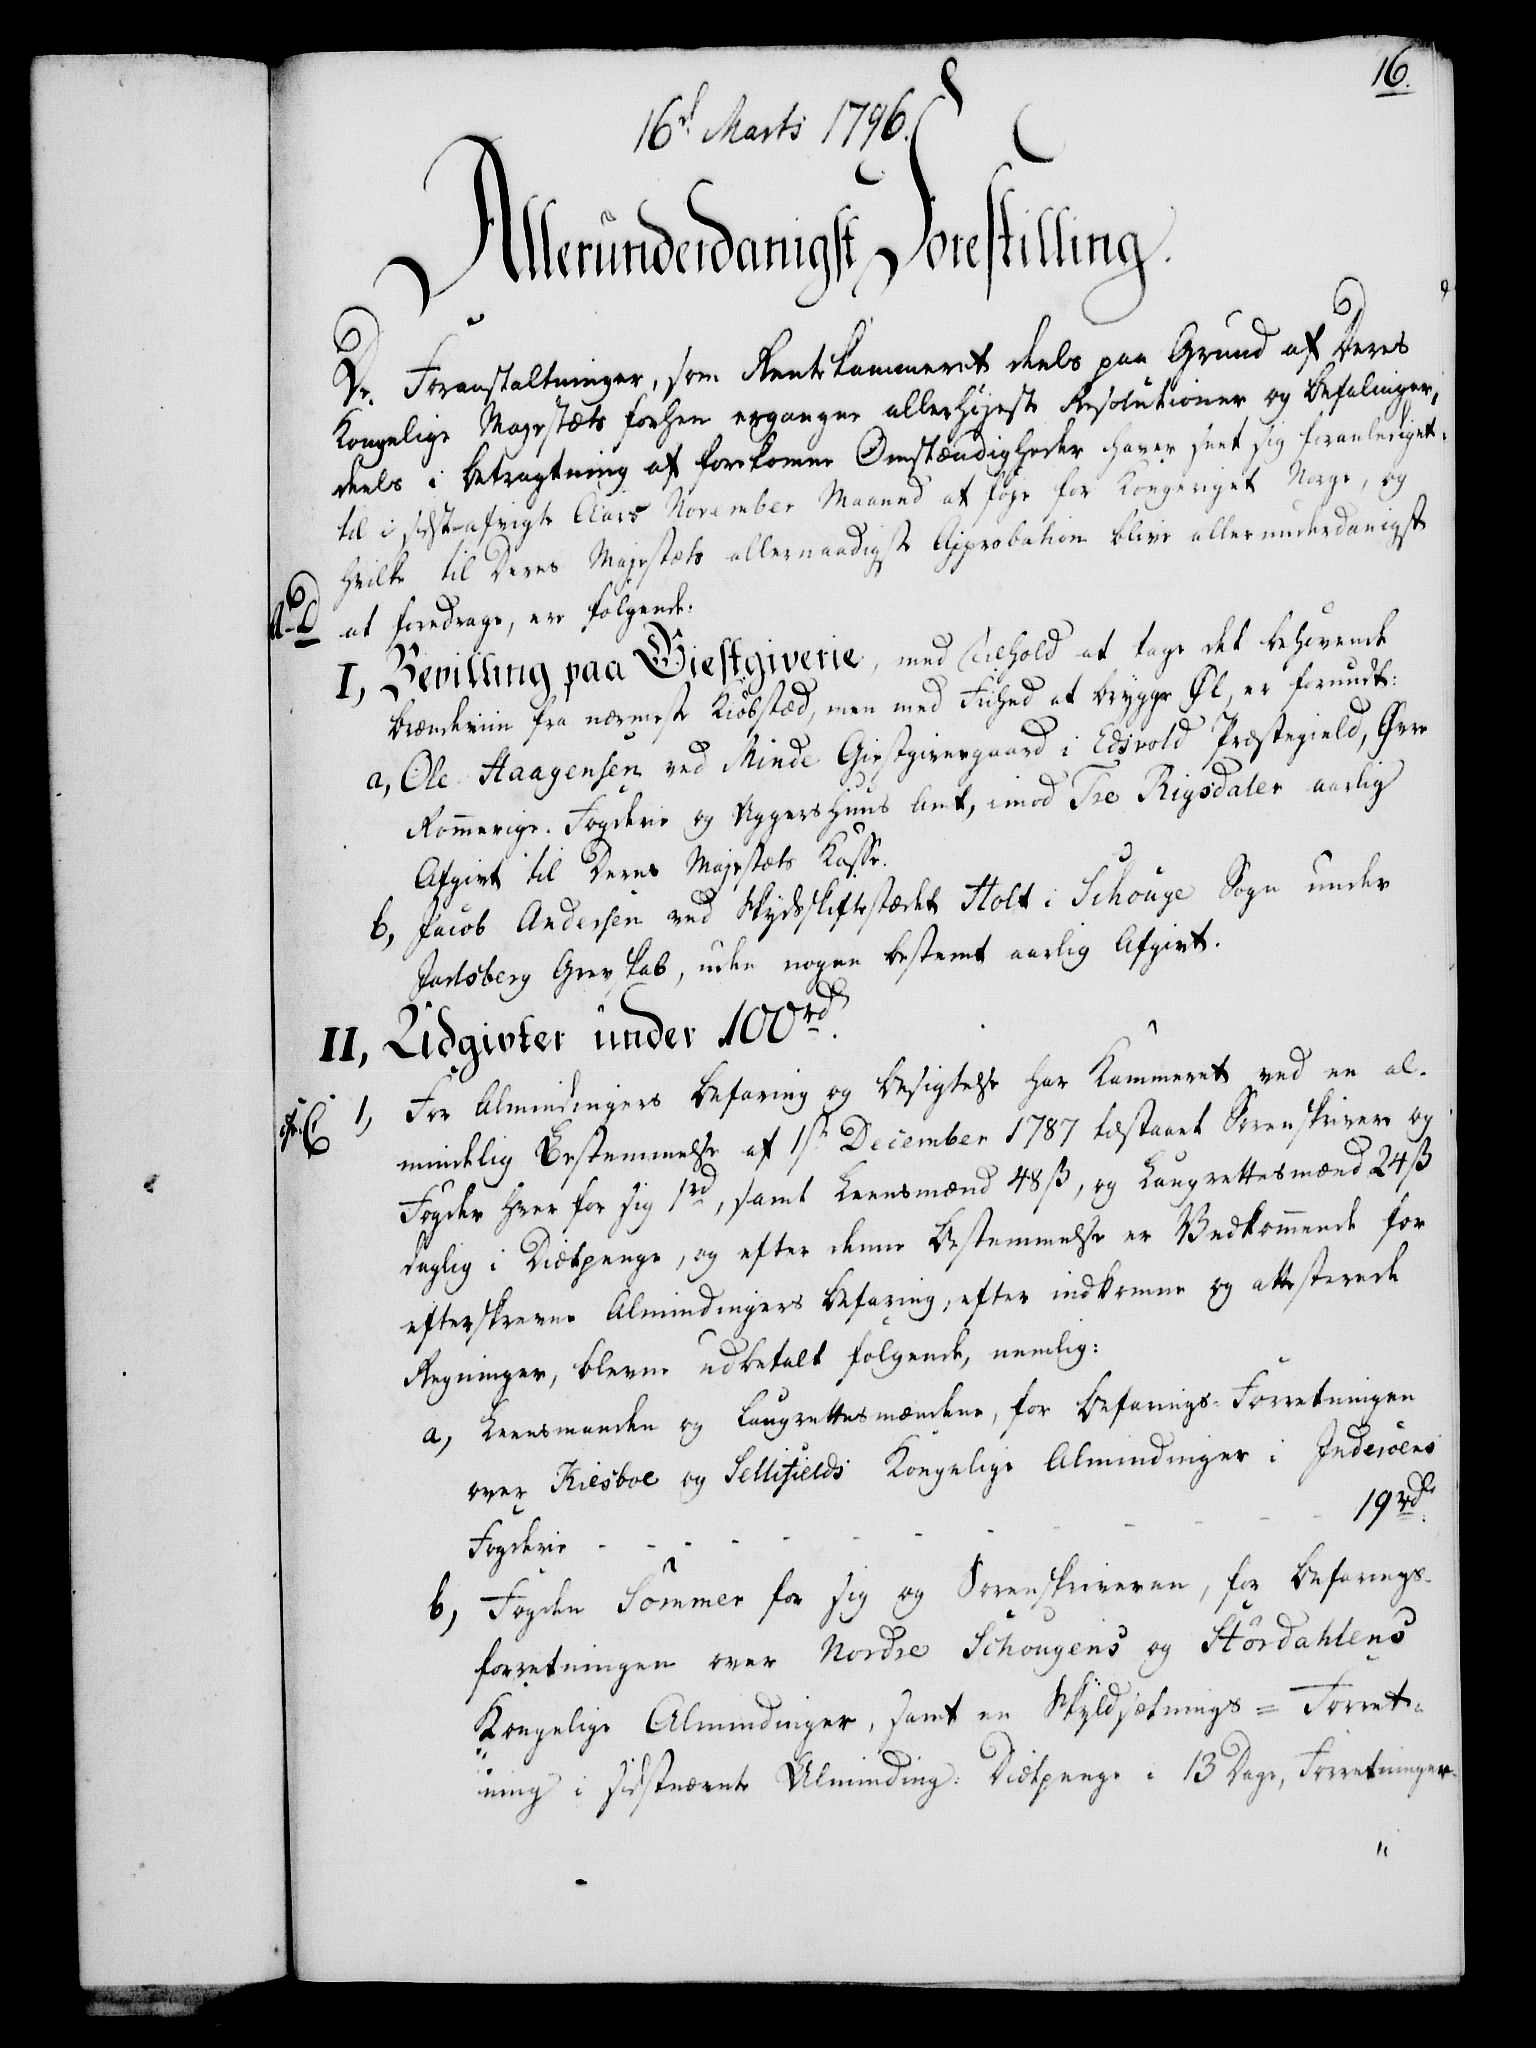 16.
16d Marts 1796.
Allerunderdanigst Forestilling.
De Foranstaltninger, som Rentekammeret deels paa Grund af Deres
Kongelige Majestæts forhen ergangne allerhøjeste Resolutioner og Befalinger,
deels i Betragtning af forekomne Omstændigheder haver seet sig foranlediget
til i sidst-afvigte Aars November Maaned at føje for Kongeriget Norge, og
hvilke til Deres Majestæts allernaadigste Approbation blive allerunderdanigst
at foredrage, ere følgende:
I, Bevilling paa Giestgiverie, med Tilhold at tage det behøvende
Brændeviin fra nærmeste Kiöbstæd, men med Frihed at brygge Øl, er forundt:
a, Ole Haagensen ved Minde Giestgivergaard i Edsvold Præstegield, Øvre
Rommerige Fogderie og Aggershuus Amt, imod Tre Rigsdaler aarlig
Afgivt til Deres Majestæts Kasse.
b, Jacob Andersen ved Skydsskiftestædet Holt i Schouge Sogn under
Jarlsberg Grevskab, uden nogen bestemt aarlig Afgivt.
II, Udgivter under 100rd.
1, For Almindingers Befaring og Besigtelse har Kammeret ved en al-
mindelig Bestemmelse af 1ste December 1787 tilstaaet Sorenskrivere og
Fogder hver for sig 1rd, samt Leensmænd 48ß, og Laugrettesmænd 24ß
daglig i Diætpenge, og efter denne Bestemmelse er Vedkommende for
efterskrevne Almindingers Befaring, efter indkomne og attesterede
Regninger, blevne udbetalt følgende, nemlig:
a, Leensmanden og Laugrettesmændene, for Befarings-Forretningen
over Kiesboe og Sellifields Kongelige Almindinger i Inderöens
Fogderie - - - - - - - - - - 19rd.
b, Fogden Sommer for sig og Sorenskriveren, for Befarings-
forretningen over Nordre Schougens og Stördahlens
Kongelige Almindinger, samt en Skyldsætnings= Forret-
ning i sidstnævnte Alminding: Diætpenge i 13 Dage, Forretninger-